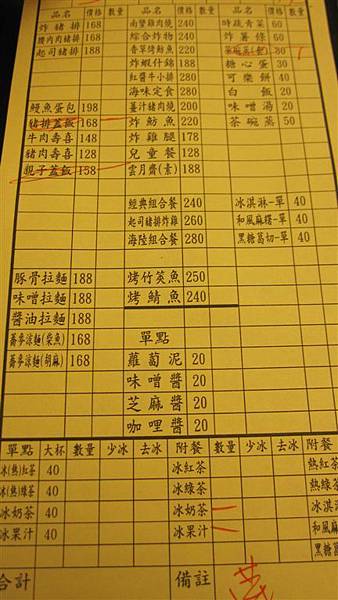 品名 價格 數量 品名 價格 數量 品名 價格 數量
炸豬排 168 南蠻雞肉燒 240 時蔬青菜 60
腰內肉豬排 188 綜合炸物 240 炸薯條 60
起司豬排 188 香草烤魴魚 220 茶碗蒸(套) 30
炸蝦什錦 188 糖心蛋 30
紅醬牛小排 280 可樂餅 40
海味定食 280 白飯 20
鰻魚蛋包 198 薑汁豬肉燒 200 味噌湯 20
豬排蓋飯 168 炸魴魚 220 茶碗蒸 50
牛肉壽喜 148 炸雞腿 178
豬肉壽喜 128 兒童餐 128
親子蓋飯 158 雲月齋(素) 188
經典組合餐 240 冰淇淋-單 40
起司豬排炸雞 260 和風麻糬-單 40
海陸組合餐 280 黑糖葛切-單 40
豚骨拉麵 188 烤竹筴魚 250
味噌拉麵 188 烤鯖魚 240
醬油拉麵 188
蕎麥涼麵(柴魚) 168 單點
蕎麥涼麵(胡麻) 168 蘿蔔泥 20
味噌醬 20
芝麻醬 20
咖哩醬 20
單點 大杯 數量 少冰 去冰 附餐 數量 少冰 去冰 附餐
冰(熱)紅茶 40 冰紅茶 熱紅茶
冰(熱)綠茶 40 冰綠茶 熱綠茶
冰奶茶 40 冰奶茶 冰淇淋
冰果汁 40 冰果汁 和風麻
黑糖葛
合計 備註